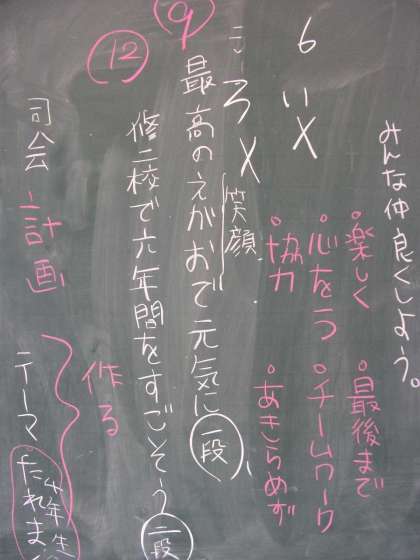 みんな仲良くしよう。
・楽しく ・最後まで
・心を
・チームワーク
・協力 ・あきらめず
6 い×
ろ×
笑顔
9
最高のえがおで元気に 一段
12
修二校で六年間をすごそう 二段
作る
司会 計画
テーマ